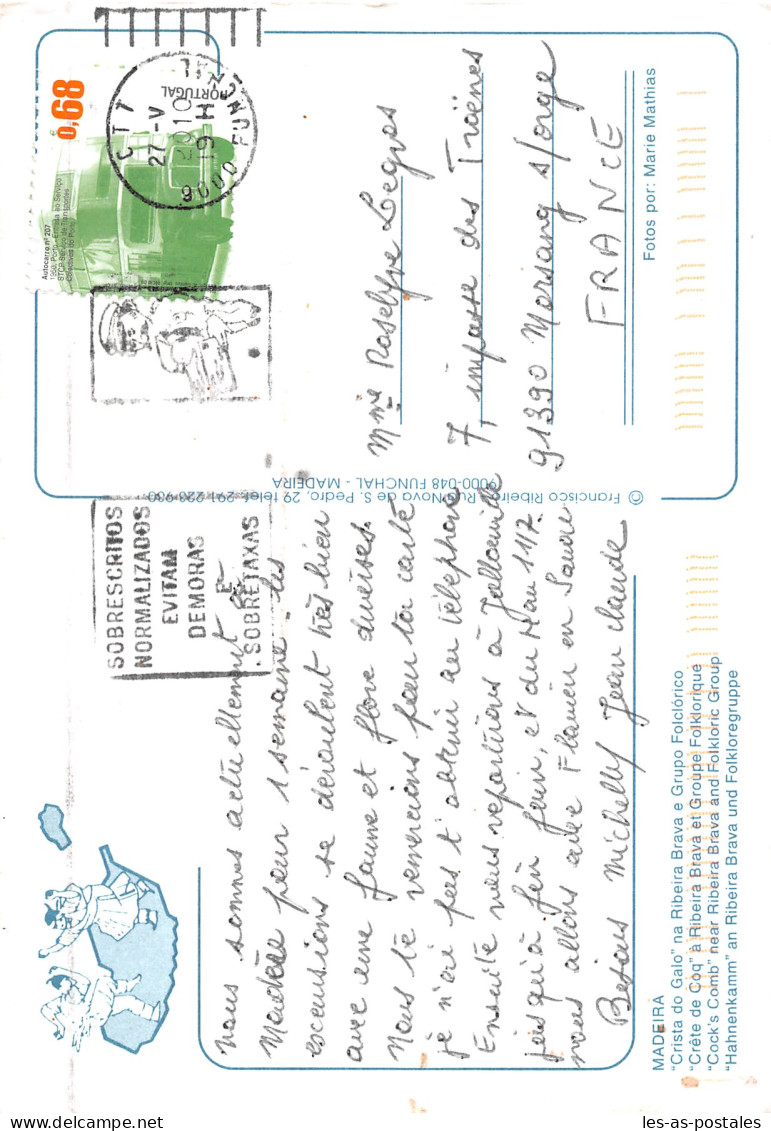 0,68
PORTUGAL
Autocarro nº 207
CTT
27-V
2010
19 H
9000 FUNCHAL
SOBRESCRITOS
NORMALIZADOS
EVITAM
DEMORAS
E
SOBRETAXAS
nous sommes actuellement
Madère pour 1 semaine. les
excursions se déroulent très bien
avec une faune et flore diverses.
Nous te remercions pour ta carte
je n'ai pas t'obtenir au téléphone
Ensuite nous repartirons à
jusqu'à fin juin, et du 11 au 17
nous allons avec Flavien en Savoie
Bisous Michelle Jean Claude
Mme Roselyne Legros
7, impasse des Troènes
91390 Morsang s/orge
FRANCE
Fotos por: Marie Mathias
© Francisco Ribeiro, Rua Nova de S. Pedro, 29 telef. 291 223 930
9000-048 FUNCHAL - MADEIRA
MADEIRA
"Crista do Galo" na Ribeira Brava e Grupo Folclórico
"Crête de Coq" à Ribeira Brava et Groupe Folklorique
"Cock's Comb" near Ribeira Brava and Folkloric Group
"Hahnenkamm" an Ribeira Brava und Folkloregruppe
les-as-postales